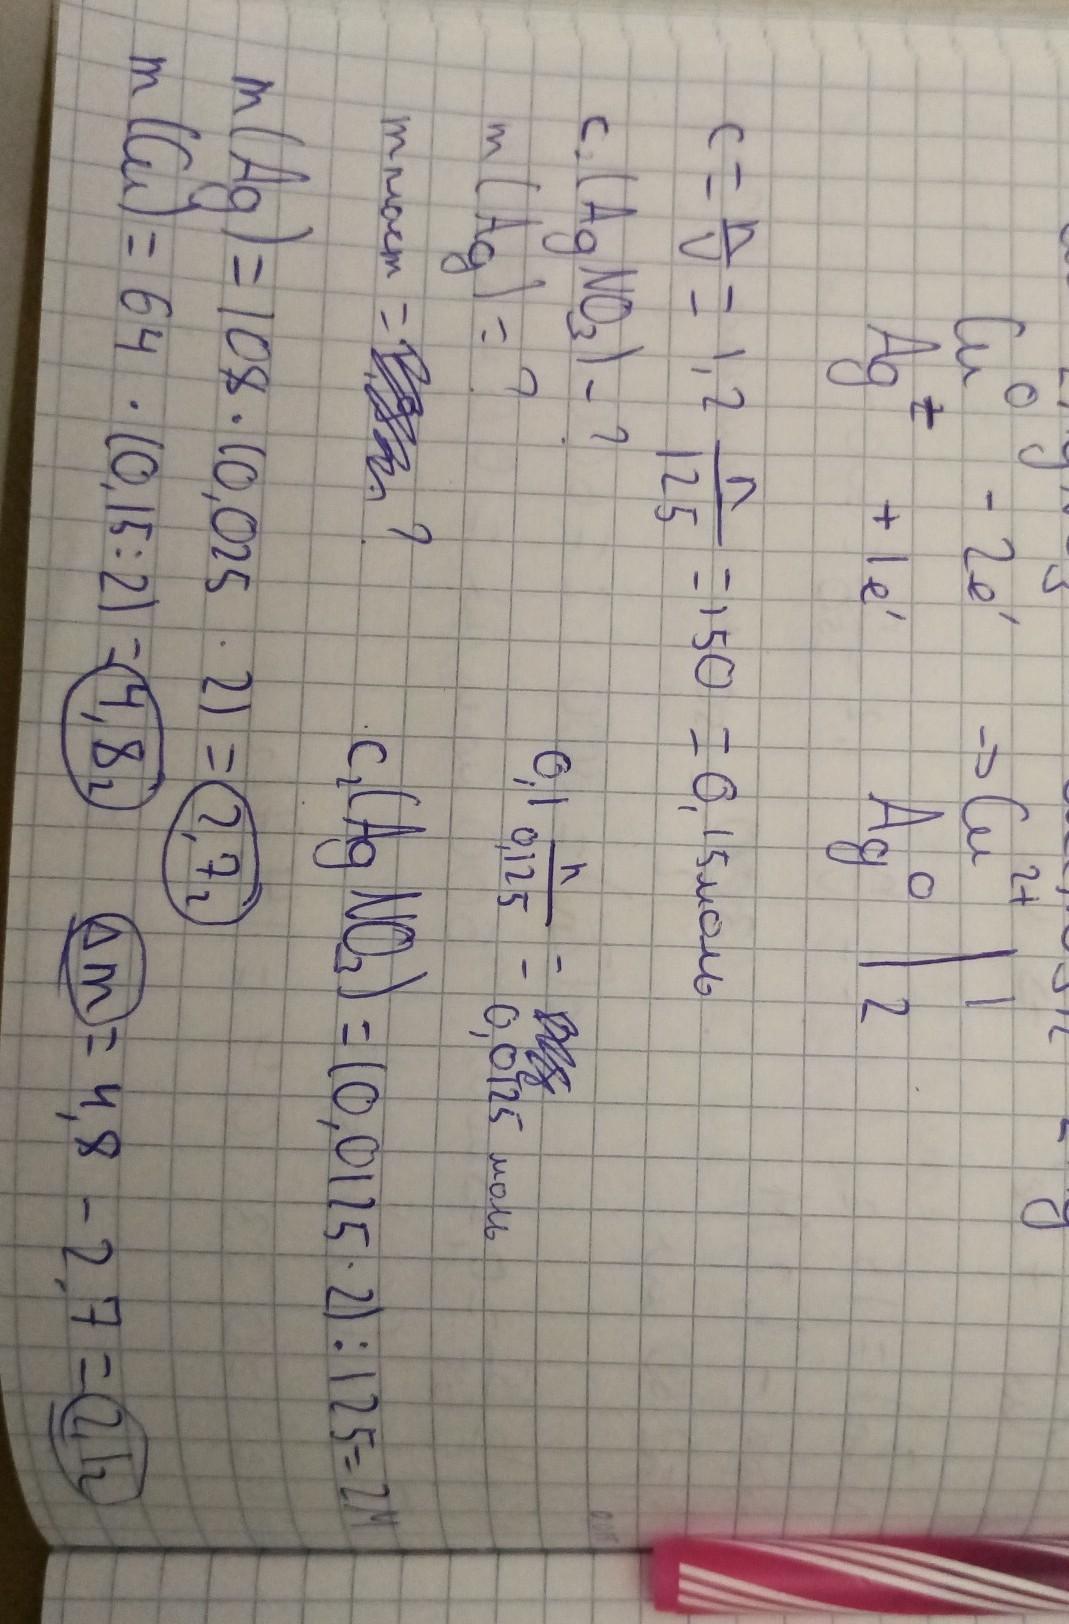 Cu⁰ - 2e' → Cu²⁺ | 1
Ag⁺ + 1e' Ag⁰ | 2
c = n/V = 1,2 n/125 = 150 = 0,15 моль
c₁(AgNO₃) - ?
0,1 n/0,125 = 0,0125 моль
m(Ag) = ?
m пласт = ?
c₂(AgNO₃) = (0,0125 · 2) : 125 = 2M
m(Ag) = 108 · (0,025 · 2) = 2,7г
m(Cu) = 64 · (0,15 : 2) = 4,8г
Δm = 4,8 - 2,7 = 2,1г